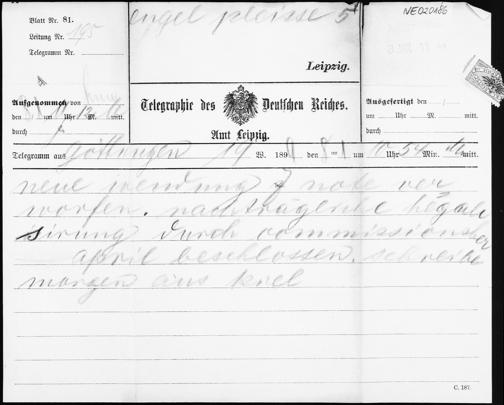 Blatt Nr. 81.
Leitung Nr. 195
Telegramm Nr.
engel pleisse 5
Leipzig.
NE020186
Aufgenommen von
um Uhr M. mitt.
durch
Telegraphie des Deutschen Reiches.
Amt Leipzig.
Ausgefertigt den
um Uhr M. mitt.
durch
Telegramm aus Göttingen 19 W. 189 den 8 1 um 10 Uhr 54 Min. mitt.
neue wendung note ver
worfen. nachträgliche legali
sirung durch commissions
april beschlossen. schreibe
morgen aus
C. 187.